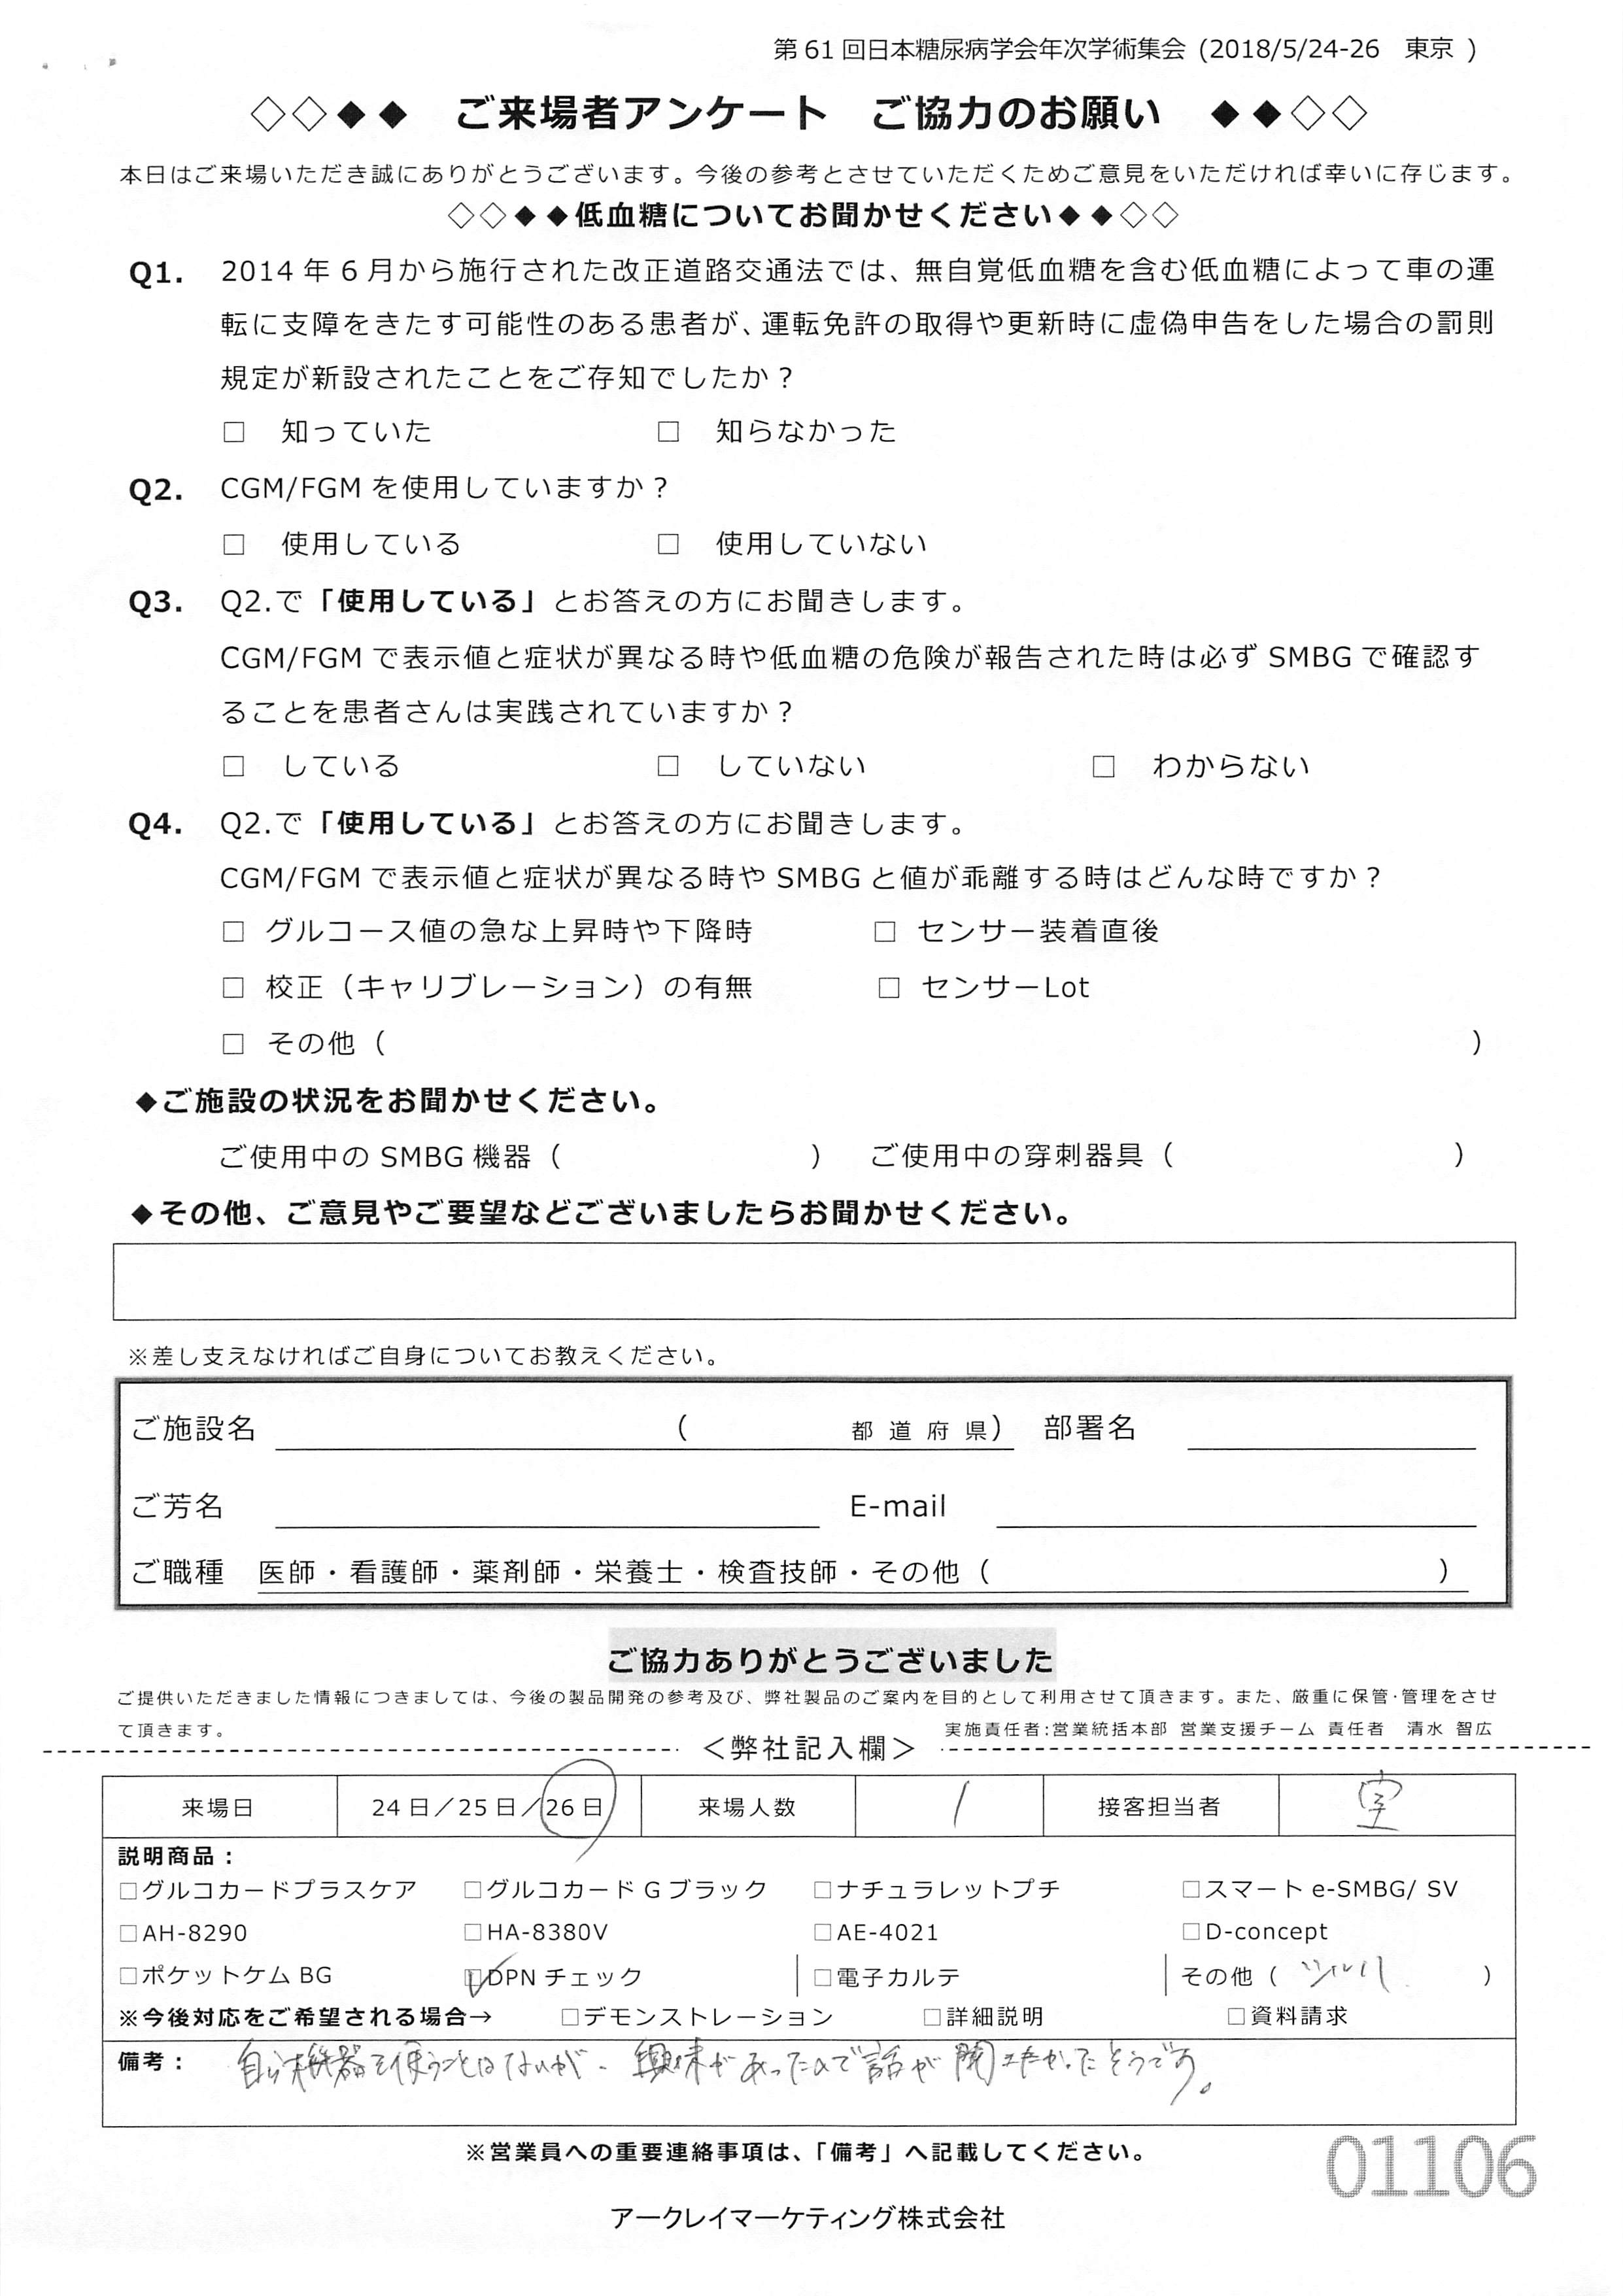 第61回日本糖尿病学会年次学術集会 (2018/5/24-26　東京 )
◇◇◆◆　ご来場者アンケート　ご協力のお願い　◆◆◇◇
本日はご来場いただき誠にありがとうございます。今後の参考とさせていただくためご意見をいただければ幸いに存じます。
◇◇◆◆低血糖についてお聞かせください◆◆◇◇
Q1.　2014年6月から施行された改正道路交通法では、無自覚低血糖を含む低血糖によって車の運
転に支障をきたす可能性のある患者が、運転免許の取得や更新時に虚偽申告をした場合の罰則
規定が新設されたことをご存知でしたか？
□　知っていた　□　知らなかった
Q2.　CGM/FGMを使用していますか？
□　使用している　□　使用していない
Q3.　Q2.で「使用している」とお答えの方にお聞きします。
CGM/FGMで表示値と症状が異なる時や低血糖の危険が報告された時は必ずSMBGで確認す
ることを患者さんは実践されていますか？
□　している　□　していない　□　わからない
Q4.　Q2.で「使用している」とお答えの方にお聞きします。
CGM/FGMで表示値と症状が異なる時やSMBGと値が乖離する時はどんな時ですか？
□ グルコース値の急な上昇時や下降時　□ センサー装着直後
□ 校正（キャリブレーション）の有無　□ センサーLot
□ その他（　）
◆ご施設の状況をお聞かせください。
ご使用中のSMBG機器（　）　ご使用中の穿刺器具（　）
◆その他、ご意見やご要望などございましたらお聞かせください。
※差し支えなければご自身についてお教えください。
ご施設名　（　都 道 府 県）　部署名
ご芳名　E-mail
ご職種　医師・看護師・薬剤師・栄養士・検査技師・その他（　）
ご協力ありがとうございました
ご提供いただきました情報につきましては、今後の製品開発の参考及び、弊社製品のご案内を目的として利用させて頂きます。また、厳重に保管・管理をさせ
て頂きます。　実施責任者:営業統括本部 営業支援チーム 責任者　清水 智広
＜弊社記入欄＞
来場日　24日／25日／26日　来場人数　1　接客担当者　室
説明商品：
□グルコカードプラスケア　□グルコカードGブラック　□ナチュラレットプチ　□スマートe-SMBG/ SV
□AH-8290　□HA-8380V　□AE-4021　□D-concept
□ポケットケムBG　☑DPNチェック　□電子カルテ　その他（　）
※今後対応をご希望される場合→　□デモンストレーション　□詳細説明　□資料請求
備考：　機器を使うことはないが、興味があったので話が聞きたかったそうです。
※営業員への重要連絡事項は、「備考」へ記載してください。
01106
アークレイマーケティング株式会社